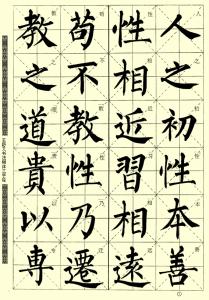 人之初性本善
性相近習相遠
苟不教性乃遷
教之道貴以專